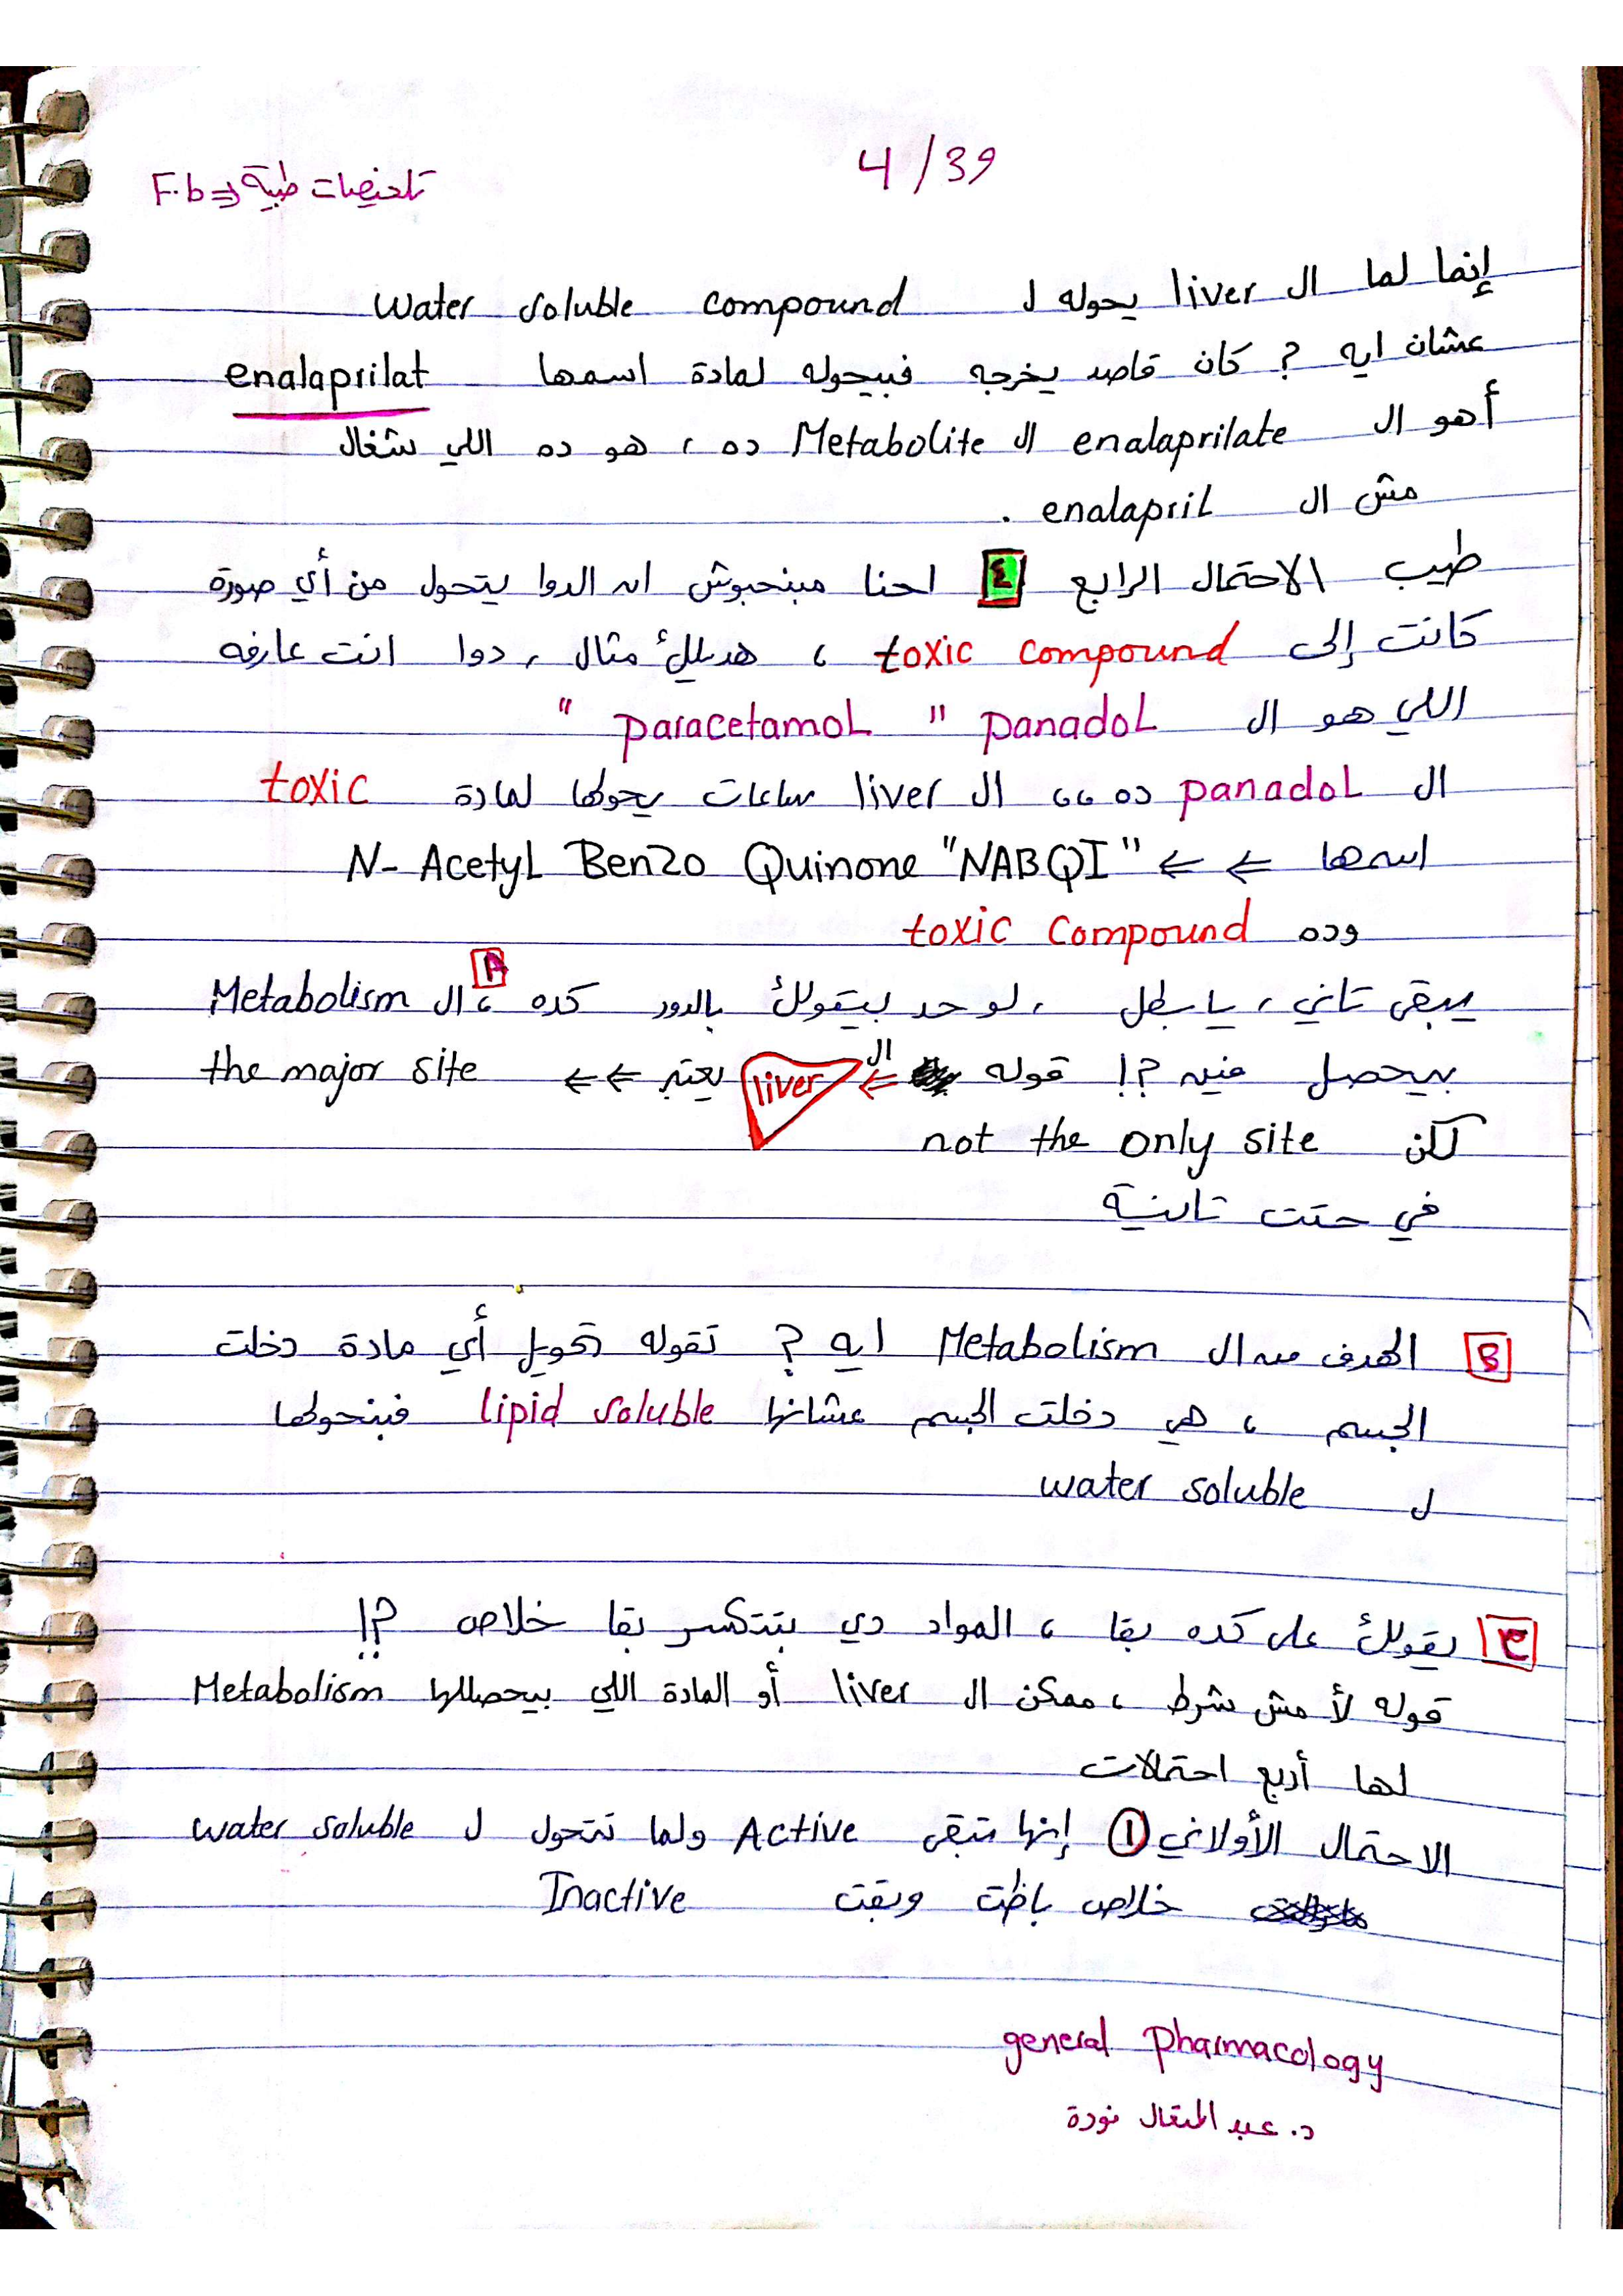 4/39
تلخيصات طبية ⇐ F.b
إنما لما ال liver يحوله ل water soluble compound
عشان ايه ? كان قاصد يخرجه فبيحوله لمادة اسمها enalaprilat
أهو ال enalaprilate ال Metabolite ده ، هو ده اللي شغال
مش ال enalapril .
طيب الاحتمال الرابع ٤ احنا مبنحبوش ان الدوا يتحول من أي صورة
كانت إلى toxic compound ، هديلك مثال ، دوا انت عارفه
اللي هو ال panadol " paracetamol "
ال panadol ده ،، ال liver ساعات يحولها لمادة toxic
اسمها ⇐ ⇐ N- Acetyl Benzo Quinone "NABQI"
وده toxic compound
يبقى تاني ، يا بطل ، لو حد بيقولك بالدور كده ، A ال Metabolism
بيحصل فين ?! قوله ⇐ ال liver يعتبر ⇐⇐ the major site
لكن not the only site
في حتت تانية
B الهدف من ال Metabolism ايه ? تقوله تحويل أي مادة دخلت
الجسم ، هي دخلت الجسم عشانها lipid soluble فبنحولها
ل water soluble
C يقولك على كده بقا ، المواد دي بتتكسر بقا خلاص ?!
قوله لأ مش شرط ، ممكن ال liver أو المادة اللي بيحصللها Metabolism
لها أربع احتمالات
الاحتمال الأولاني ① إنها تبقى Active ولما تتحول ل water soluble
خلاص باظت وبقت Inactive
general pharmacology
د. عبد المتعال فودة